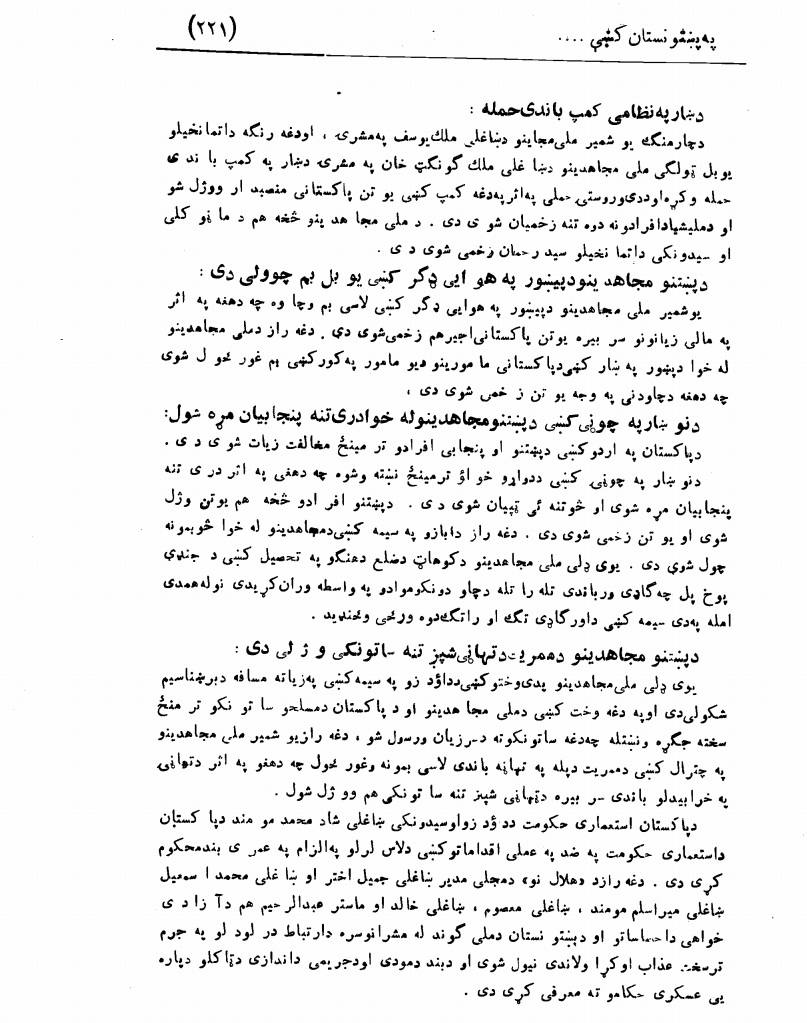 په پښتونستان کښې .... (۲۲۱)
دښارپه نظامی کمپ باندی حمله :
دچارمنگ یو شمیر ملی مجاینو دښاغلی ملك یوسف په مشری ، اودغه رنگه داتمانخیلو
یوبل ټولگی ملی مجاهدینو دښا غلی ملك گونگټ خان په مشری دښار په کمپ با ند ی
حمله وکړه اوددی وروستی حملی په اثر په دغه کمپ کښی یو تن پاکستانی منصبد ار ووژل شو
او دملیشیادافرادونه دوه تنه زخمیان شو ی دی . د ملی مجا هد ینو څخه هم د ما ټو کلی
او سیدونکی داتما نخیلو سید رحمان زخمی شوی د ی .
دپښتنو مجاهد ینودپیښور په هو ایی ډگر کښی یو بل بم چوولی دی :
یوشمیر ملی مجاهدینو دپیښور په هوایی ډگر کښی لاسی بم وچا وه چه دهغه په اثر
په مالی زیانونو سر بیره یوتن پاکستانی اجیرهم زخمی شوی دی . دغه راز دملی مجاهدینو
له خوا دپښور په ښار کښی دپاکستانی ما مورینو دیو مامور په کورکښی بم غور ځو ل شوی
چه دهغه دچاودنی په وجه یو تن ز خمی شوی دی ،
دنو ښارپه چوڼی کښی دپښتنومجاهدینوله خوادری تنه پنجابیان مړه شول:
دپاکستان په اردوکښی دپښتنو او پنجابی افرادو تر مینځ مخالفت زیات شو ی د ی .
دنو ښار په چوڼی کښی ددواړو خو اؤ ترمینځ نښته وشوه چه دهغی په اثر دری تنه
پنجابیان مړه شوی او څوتنه ئی ټپیان شوی د ی . دپښتنو افر ادو څخه هم یوتن وژل
شوی او یو تن زخمی شوی دی . دغه راز دابازو په سیمه کښی دمجاهدینو له خوا څوبمونه
چول شوې دی . یوی ډلی ملی مجاهدینو دکوهاټ دضلع دهنگو په تحصیل کښی د جنډې
پوخ پل چه گاډی ورباندی تله را تله دچاو دونکوموادو په واسطه وران کړیدی نوله همدی
امله په دی سیمه کښی داورگاډی تگ او راتگ دوه ورځی وځنډید .
دپښتنو مجاهدینو دهمریټ دتهاڼی شپږ تنه ساتونکی و ژ لی دی :
یوی ډلی ملی مجاهدینو پدی وختوکښی دداؤد زو په سیمه کښی په زیاته مسافه دبرښناسیم
شکولی دی اوپه دغه وخت کښی دملی مجا هدینو او د پاکستان دمسلحو سا تو نکو تر منځ
سخته جگړه ونښتله چه دغه ساتونکوته د‌سر زیان ورسول شو ، دغه رازیو شمیر ملی مجاهدینو
په چترال کښی دهمریټ دپله په تهاڼه باندی لاسی بمونه وغور ځول چه دهغو په اثر دتهاڼی
په خرابیدلو باندی سر بیره دتهاڼی شپږ تنه سا تو نکی هم وو ژل شول .
دپاکستان استعماری حکومت دد ؤد زواوسیدونکی ښاغلی شاد محمد مو مند دپا کستان
داستعماری حکومت په ضد په عملی اقداماتوکښی دلاس لرلو په الزام په عمر ی بندمحکوم
کړی دی . دغه رازد «هلال نو» دمجلی مدیر ښاغلی جمیل اختر او ښا غلی محمد ا سمعیل
ښاغلی میراسلم مومند ، ښاغلی معصوم ، ښاغلی خالد او ماستر عبدالرحیم هم دآ زا د ی
خواهی داحساساتو او دپښتو نستان دملی گوند له مشرانوسره دارتباط در لود لو په جرم
ترسخت عذاب اوکړا ولاندی نیول شوی او دبند دمودی اودجریمی داندازی دټاکلو دپاره
یی عسکری حکامو ته معرفی کړی دی .